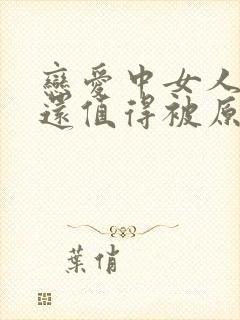 戀愛中女人
還值得被原
葉俏